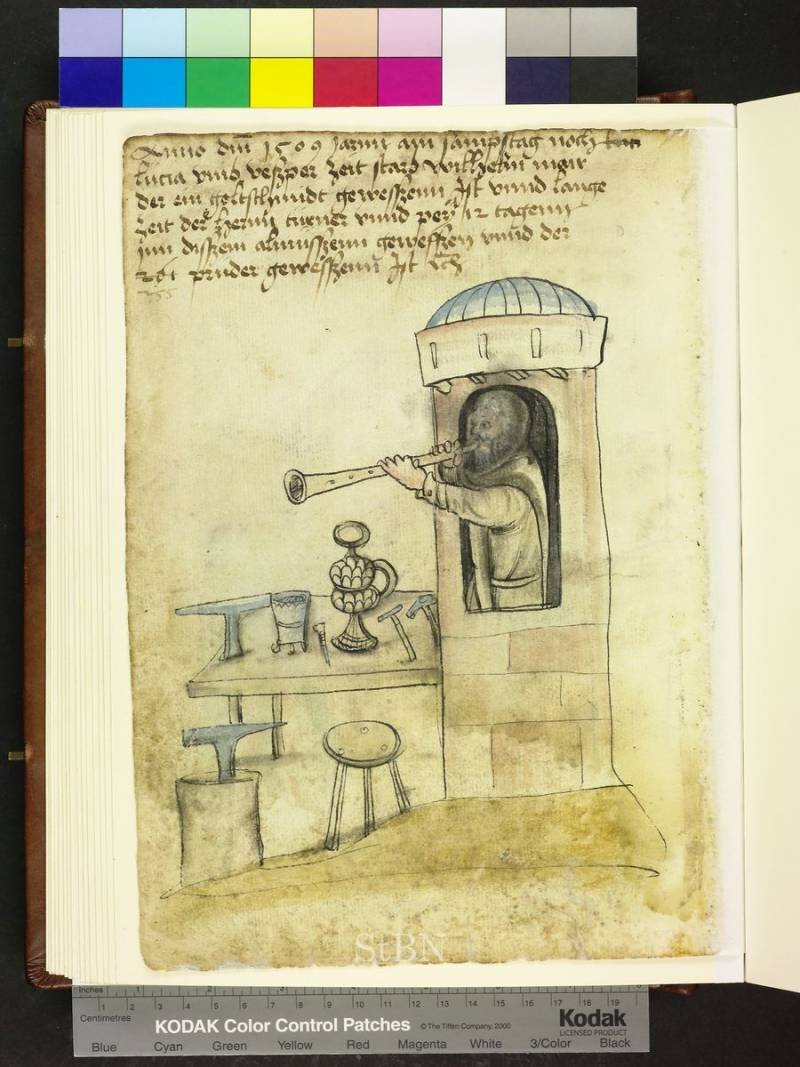 Anno dm̄ 1509 Jarnn am sampstag noch
lucia vmb veszper zeit starb wilhelm
der ein goltschmidt gewesszenn Ist vnnd lange
zeit der hernn turner vnnd 12 tagenn
Inn diszem almussenn gewesszen vnnd der
261 pruder gewesszenn Ist
255
StBN
Inches
1 2 3 4 5 6 7 8
Centimetres 1 2 3 4 5 6 7 8 9 10 11 12 13 14 15 16 17 18 19
KODAK Color Control Patches © The Tiffen Company, 2000 Kodak
LICENSED PRODUCT
Blue Cyan Green Yellow Red Magenta White 3/Color Black